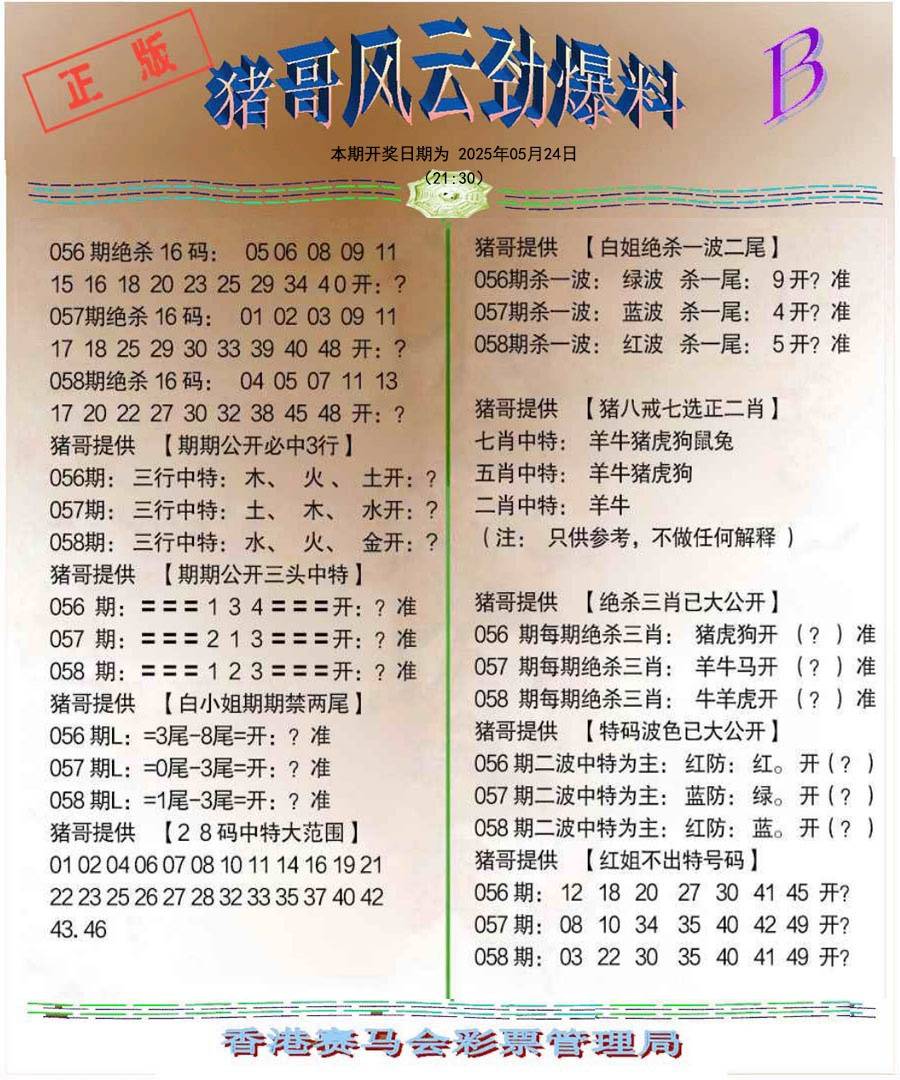 正版
猪哥风云劲爆料
B
本期开奖日期为 2025年05月24日
（21:30）
056期绝杀16码： 05 06 08 09 11
15 16 18 20 23 25 29 34 40开：?
057期绝杀16码： 01 02 03 09 11
17 18 25 29 30 33 39 40 48 开：?
058期绝杀16码： 04 05 07 11 13
17 20 22 27 30 32 38 45 48 开：?
猪哥提供 【期期公开必中3行】
056期： 三行中特： 木、 火、 土开：?
057期： 三行中特： 土、 木、 水开：?
058期： 三行中特： 水、 火、 金开：?
猪哥提供 【期期公开三头中特】
056 期：===134===开：? 准
057 期：===213===开：? 准
058 期：===123===开：? 准
猪哥提供 【白小姐期期禁两尾】
056期L：=3尾-8尾=开：? 准
057期L：=0尾-3尾=开：? 准
058期L：=1尾-3尾=开：? 准
猪哥提供 【28码中特大范围】
01 02 04 06 07 08 10 11 14 16 19 21
22 23 25 26 27 28 32 33 35 37 40 42
43.46
猪哥提供 【白姐绝杀一波二尾】
056期杀一波： 绿波 杀一尾： 9开? 准
057期杀一波： 蓝波 杀一尾： 4开? 准
058期杀一波： 红波 杀一尾： 5开? 准
猪哥提供 【猪八戒七选正二肖】
七肖中特： 羊牛猪虎狗鼠兔
五肖中特： 羊牛猪虎狗
二肖中特： 羊牛
（注： 只供参考，不做任何解释）
猪哥提供 【绝杀三肖已大公开】
056 期每期绝杀三肖： 猪虎狗开 （?）准
057 期每期绝杀三肖： 羊牛马开 （?）准
058 期每期绝杀三肖： 牛羊虎开 （?）准
猪哥提供 【特码波色已大公开】
056期二波中特为主： 红防： 红。 开（?）
057期二波中特为主： 蓝防： 绿。 开（?）
058期二波中特为主： 红防： 蓝。 开（?）
猪哥提供 【红姐不出特号码】
056期： 12 18 20 27 30 41 45 开?
057期： 08 10 34 35 40 42 49 开?
058期： 03 22 30 35 40 41 49 开?
香港赛马会彩票管理局